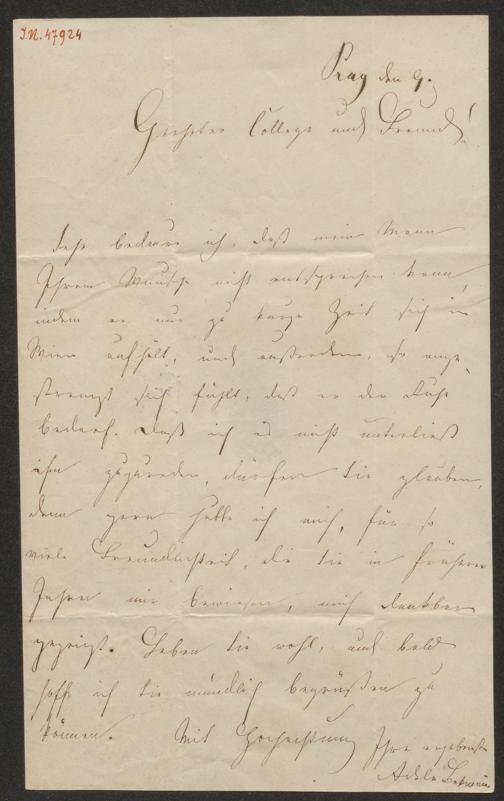 I.N. 47924
Prag den 9.
Geehrter College und Freund!
Sehr bedaure ich, daß mein Mann
Ihrem Wunsche nicht entsprechen kann,
indem er nur zu kurze Zeit sich in
Wien aufhält, und außerdem, so ange-
strengt sich fühlt, daß er der Ruhe
bedarf. Daß ich es nicht unterließ
ihm zuzureden, dürfen Sie glauben,
denn gern hätte ich mich, für so
viele Freundlichkeit, die Sie in früheren
Jahren mir bewiesen, mich dankbar
gezeigt. Leben Sie wohl, und bald
hoffe ich Sie mündlich begrüßen zu
können. Mit Hochachtung Ihre ergebenste
Adele